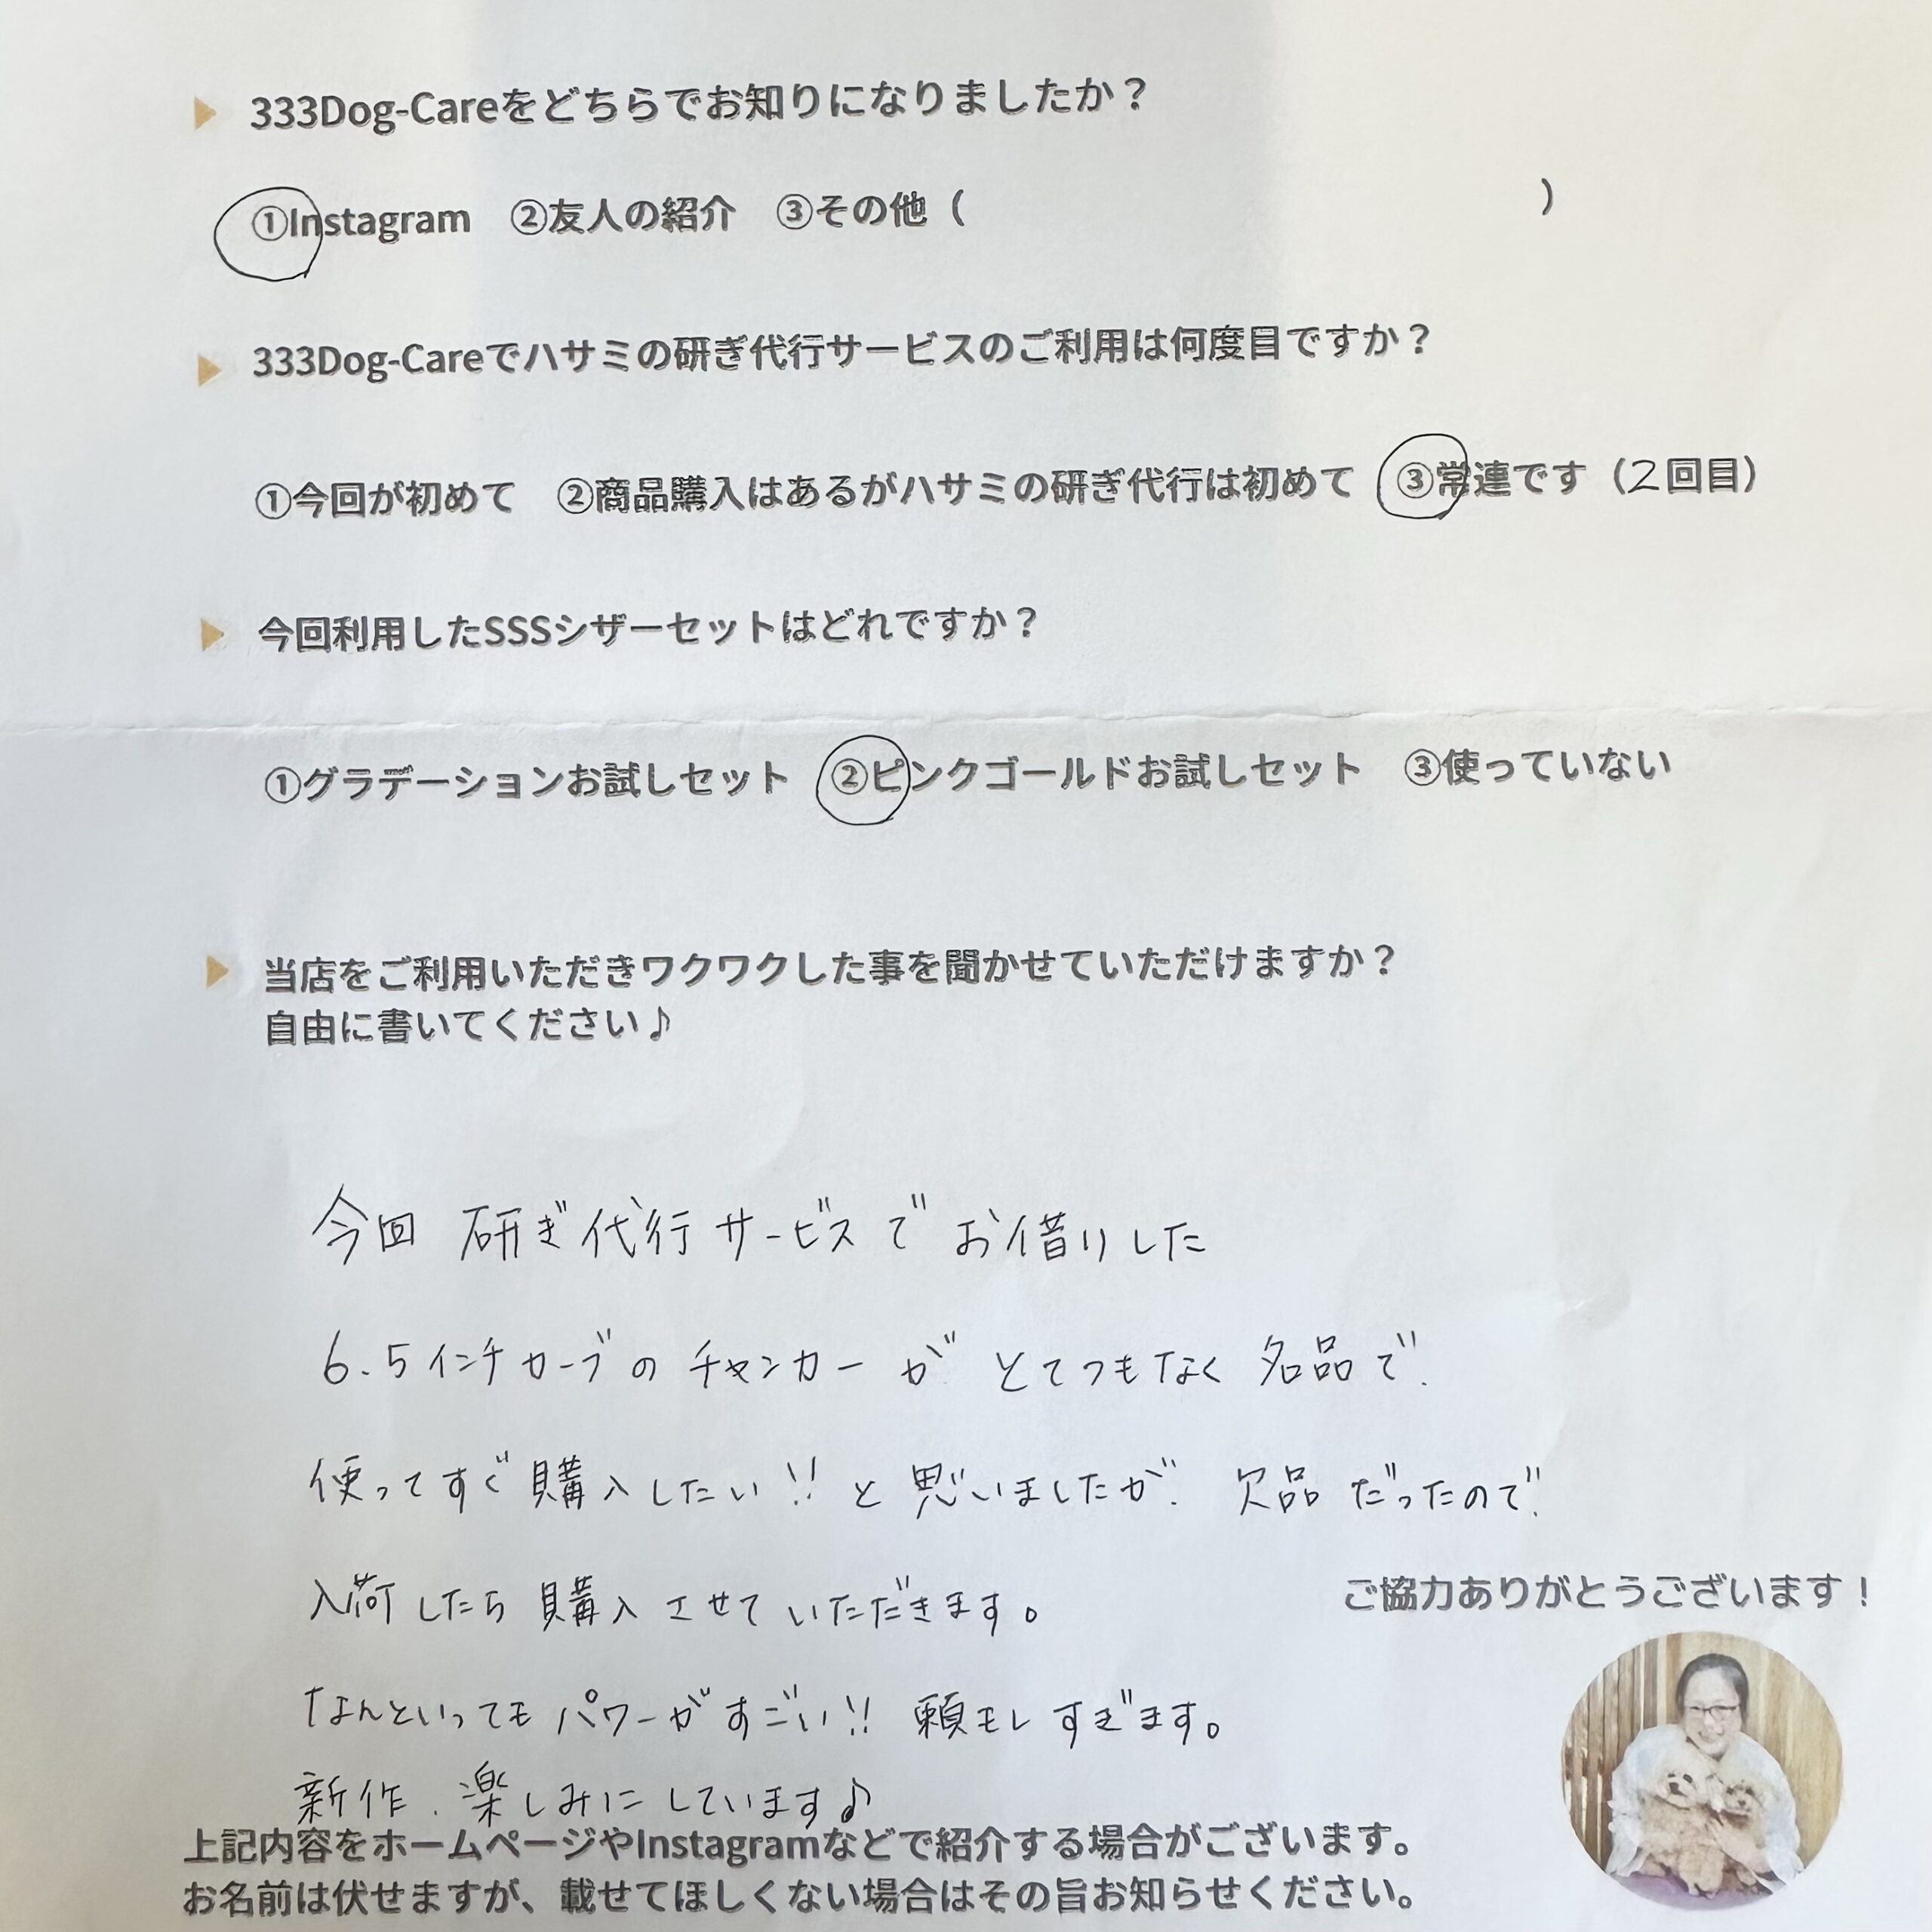 333Dog-Careをどちらでお知りになりましたか？
①Instagram　②友人の紹介　③その他（　　　　　　　　　　　　　　　）
333Dog-Careでハサミの研ぎ代行サービスのご利用は何度目ですか？
①今回が初めて　②商品購入はあるがハサミの研ぎ代行は初めて　③常連です（2回目）
今回利用したSSSシザーセットはどれですか？
①グラデーションお試しセット　②ピンクゴールドお試しセット　③使っていない
当店をご利用いただきワクワクした事を聞かせていただけますか？
自由に書いてください♪
今回 研ぎ代行サービスで お借りした
6.5インチカーブの チャンカーが とてつもなく 名品で、
使ってすぐ購入したい!! と 思いましたが、 欠品 だったので、
入荷したら 購入 させて いただきます。
ご協力ありがとうございます！
なんといっても パワーがすごい!! 頼モレ すぎます。
新作、楽しみに しています♪
上記内容をホームページやInstagramなどで紹介する場合がございます。
お名前は伏せますが、載せてほしくない場合はその旨お知らせください。